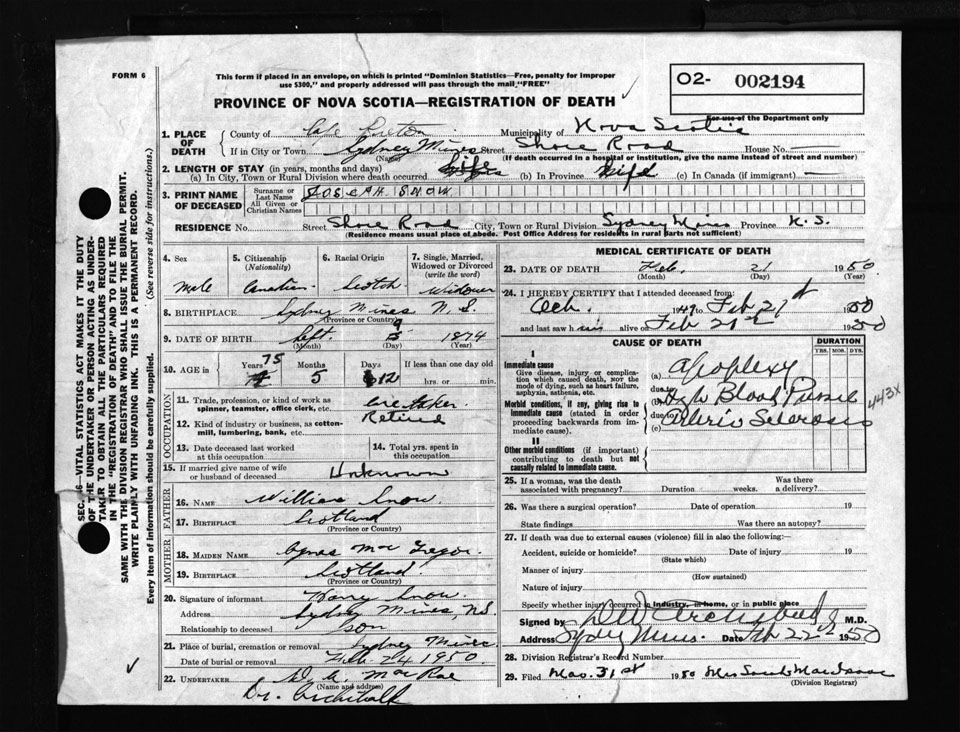 FORM 6
This form if placed in an envelope, on which is printed "Dominion Statistics—Free, penalty for improper
use $300," and properly addressed will pass through the mail "FREE"
O2- 002194
For use of the Department only
PROVINCE OF NOVA SCOTIA—REGISTRATION OF DEATH
1. PLACE OF DEATH
County of Cape Breton Municipality of Nova Scotia
If in City or Town Sydney Mines Street Shore Road House No. —
(Name) (If death occurred in a hospital or institution, give the name instead of street and number)
2. LENGTH OF STAY (in years, months and days)
(a) In City, Town or Rural Division where death occurred Life (b) In Province Life (c) In Canada (if immigrant) —
3. PRINT NAME OF DECEASED
Surname or Last Name JOSEPH SNOW
All Given or Christian Names
RESIDENCE No. Street Shore Road City, Town or Rural Division Sydney Mines Province N.S.
(Residence means usual place of abode. Post Office Address for residents in rural parts not sufficient)
4. Sex 5. Citizenship (Nationality) 6. Racial Origin 7. Single, Married, Widowed or Divorced (write the word)
Male Canadian Scotch Widower
8. BIRTHPLACE Sydney Mines N. S.
(Province or Country)
9. DATE OF BIRTH Sept. 9 1874
(Month) (Day) (Year)
10. AGE in Years 75 Months 5 Days 12 If less than one day old hrs. or min.
OCCUPATION
11. Trade, profession, or kind of work as spinner, teamster, office clerk, etc. Caretaker
12. Kind of industry or business, as cotton-mill, lumbering, bank, etc. Retired
13. Date deceased last worked at this occupation
14. Total yrs. spent in this occupation
15. If married give name of wife or husband of deceased Unknown
FATHER
16. NAME William Snow
17. BIRTHPLACE Scotland
(Province or Country)
MOTHER
18. MAIDEN NAME Agnes MacGregor
19. BIRTHPLACE Scotland
(Province or Country)
20. Signature of informant Harry Snow
Address Sydney Mines, N.S.
Relationship to deceased Son
21. Place of burial, cremation or removal Sydney Mines
Date of burial or removal Feb 24 1950
22. UNDERTAKER MacRae
(Name and address)
Dr. Archibald
MEDICAL CERTIFICATE OF DEATH
23. DATE OF DEATH Feb. 21 1950
(Month) (Day)
24. I HEREBY CERTIFY that I attended deceased from:
Oct. 1949 Feb 21st 1950
and last saw him alive on Feb 21st 1950
CAUSE OF DEATH
DURATION
YRS. MOS. DYS.
I
Immediate cause
Give disease, injury or complication which caused death, NOT the mode of dying, such as heart failure, asphyxia, asthenia, etc.
(a) Apoplexy
due to
(b) High Blood Pressure
Morbid conditions, if any, giving rise to immediate cause (stated in order proceeding backwards from immediate cause).
due to
(c) Arterio Sclerosis
443X
II
Other morbid conditions (if important) contributing to death but not causally related to immediate cause.
25. If a woman, was the death associated with pregnancy? Duration weeks. Was there a delivery?
26. Was there a surgical operation? Date of operation 19
State findings Was there an autopsy?
27. If death was due to external causes (violence) fill in also the following:—
Accident, suicide or homicide? Date of injury 19
(State which)
Manner of injury
(How sustained)
Nature of injury
Specify whether injury occurred in industry, in home, or in public place
Signed by Archibald M.D.
Address Sydney Mines. Date Feb 22nd 1950
28. Division Registrar's Record Number
29. Filed Mar. 31st 1950 Mrs Sarah MacIsaac
(Division Registrar)
SEC. 16—VITAL STATISTICS ACT MAKES IT THE DUTY
OF THE UNDERTAKER OR PERSON ACTING AS UNDER-
TAKER TO OBTAIN ALL THE PARTICULARS REQUIRED
IN THE "REGISTRATION OF DEATH" AND TO FILE THE
SAME WITH THE DIVISION REGISTRAR WHO SHALL ISSUE THE BURIAL PERMIT.
WRITE PLAINLY WITH UNFADING INK. THIS IS A PERMANENT RECORD.
Every item of information should be carefully supplied. (See reverse side for instructions.)